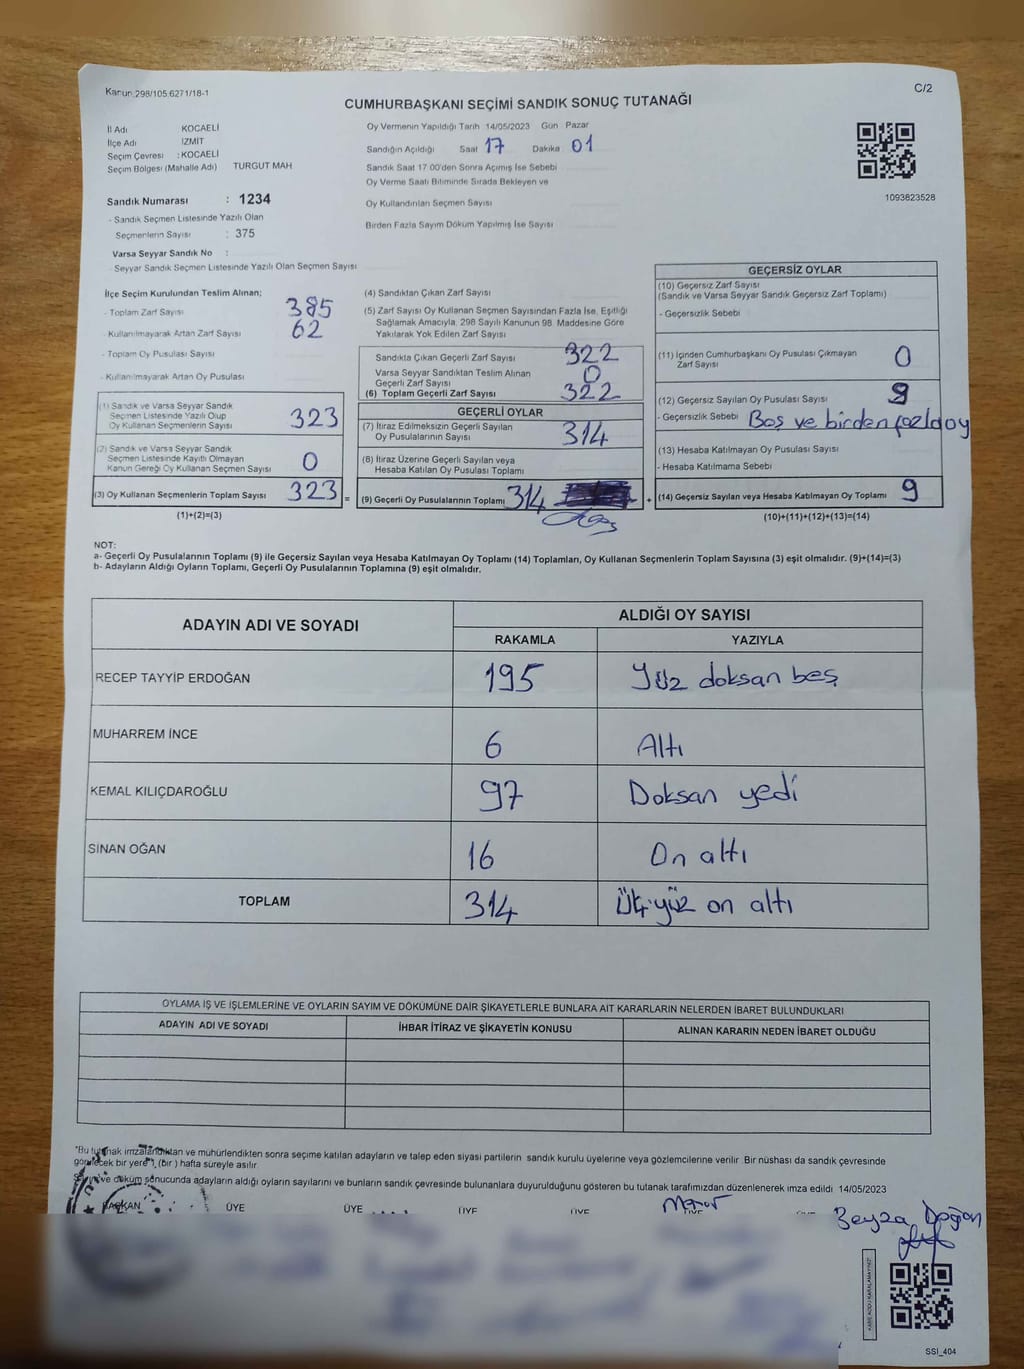 Kanun 298/105.6271/18-1
C/2
CUMHURBAŞKANI SEÇİMİ SANDIK SONUÇ TUTANAĞI
İl Adı KOCAELİ
İlçe Adı İZMİT
Seçim Çevresi : KOCAELİ
Seçim Bölgesi (Mahalle Adı) TURGUT MAH
Oy Vermenin Yapıldığı Tarih 14/05/2023 Gün Pazar
Sandığın Açıldığı Saat 17 Dakika 01
Sandık Saat 17:00'den Sonra Açımış İse Sebebi
Oy Verme Saati Bitiminde Sırada Bekleyen ve
Oy Kullandırılan Seçmen Sayısı
Birden Fazla Sayım Döküm Yapılmış İse Sayısı
1093823528
Sandık Numarası : 1234
- Sandık Seçmen Listesinde Yazılı Olan
Seçmenlerin Sayısı : 375
Varsa Seyyar Sandık No :
- Seyyar Sandık Seçmen Listesinde Yazılı Olan Seçmen Sayısı
İlçe Seçim Kurulundan Teslim Alınan;
- Toplam Zarf Sayısı 385
- Kullanılmayarak Artan Zarf Sayısı 62
- Toplam Oy Pusulası Sayısı
- Kullanılmayarak Artan Oy Pusulası
(1) Sandık ve Varsa Seyyar Sandık
Seçmen Listesinde Yazılı Olup
Oy Kullanan Seçmenlerin Sayısı 323
(2) Sandık ve Varsa Seyyar Sandık
Seçmen Listesinde Kayıtlı Olmayan
Kanun Gereği Oy Kullanan Seçmen Sayısı 0
(3) Oy Kullanan Seçmenlerin Toplam Sayısı 323 =
(1)+(2)=(3)
(4) Sandıktan Çıkan Zarf Sayısı
(5) Zarf Sayısı Oy Kullanan Seçmen Sayısından Fazla İse, Eşitliği
Sağlamak Amacıyla, 298 Sayılı Kanunun 98. Maddesine Göre
Yakılarak Yok Edilen Zarf Sayısı
Sandıkta Çıkan Geçerli Zarf Sayısı 322
Varsa Seyyar Sandıktan Teslim Alınan
Geçerli Zarf Sayısı 0
(6) Toplam Geçerli Zarf Sayısı 322
GEÇERLİ OYLAR
(7) İtiraz Edilmeksizin Geçerli Sayılan
Oy Pusulalarının Sayısı 314
(8) İtiraz Üzerine Geçerli Sayılan veya
Hesaba Katılan Oy Pusulası Toplamı
(9) Geçerli Oy Pusulalarının Toplamı 314 +
GEÇERSİZ OYLAR
(10) Geçersiz Zarf Sayısı
(Sandık ve Varsa Seyyar Sandık Geçersiz Zarf Toplamı)
- Geçersizlik Sebebi
(11) İçinden Cumhurbaşkanı Oy Pusulası Çıkmayan
Zarf Sayısı 0
(12) Geçersiz Sayılan Oy Pusulası Sayısı 9
- Geçersizlik Sebebi Boş ve birden fazla oy
(13) Hesaba Katılmayan Oy Pusulası Sayısı
- Hesaba Katılmama Sebebi
(14) Geçersiz Sayılan veya Hesaba Katılmayan Oy Toplamı 9
(10)+(11)+(12)+(13)=(14)
NOT:
a- Geçerli Oy Pusulalarının Toplamı (9) ile Geçersiz Sayılan veya Hesaba Katılmayan Oy Toplamı (14) Toplamları, Oy Kullanan Seçmenlerin Toplam Sayısına (3) eşit olmalıdır. (9)+(14)=(3)
b- Adayların Aldığı Oyların Toplamı, Geçerli Oy Pusulalarının Toplamına (9) eşit olmalıdır.
ADAYIN ADI VE SOYADI
ALDIĞI OY SAYISI
RAKAMLA YAZIYLA
RECEP TAYYİP ERDOĞAN 195 Yüz doksan beş
MUHARREM İNCE 6 Altı
KEMAL KILIÇDAROĞLU 97 Doksan yedi
SİNAN OĞAN 16 On altı
TOPLAM 314 Üç yüz on altı
OYLAMA İŞ VE İŞLEMLERİNE VE OYLARIN SAYIM VE DÖKÜMÜNE DAİR ŞİKAYETLERLE BUNLARA AİT KARARLARIN NELERDEN İBARET BULUNDUKLARI
ADAYIN ADI VE SOYADI İHBAR İTİRAZ VE ŞİKAYETİN KONUSU ALINAN KARARIN NEDEN İBARET OLDUĞU
"Bu tutanak imzalandıktan ve mühürlendikten sonra seçime katılan adayların ve talep eden siyasi partilerin sandık kurulu üyelerine veya gözlemcilerine verilir. Bir nüshası da sandık çevresinde
görülecek bir yere 1, (bir) hafta süreyle asılır.
Sayım ve döküm sonucunda adayların aldığı oyların sayılarını ve bunların sandık çevresinde bulunanlara duyurulduğunu gösteren bu tutanak tarafımızdan düzenlenerek imza edildi 14/05/2023
BAŞKAN ÜYE ÜYE ÜYE ÜYE ÜYE
Beyza Doğan
SSI_404